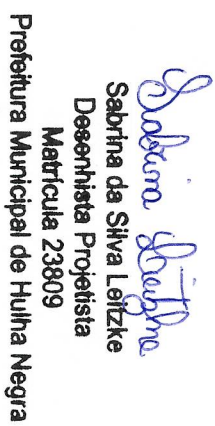 Sabrina Leitzke
Sabrina da Silva Leitzke
Desenhista Projetista
Matrícula 23809
Prefeitura Municipal de Hulha Negra